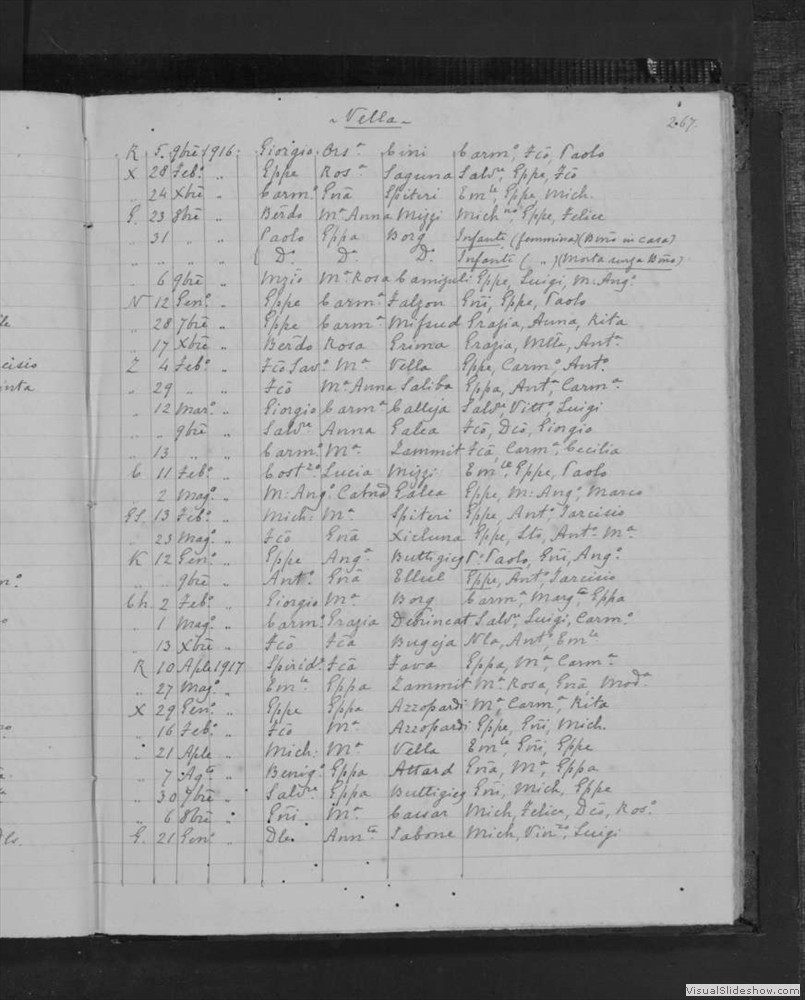 - Vella -
267.
R 5. 9bre 1916: Giorgio Ors.a Cini Carm.o, Fcō, Paolo
X 28 Feb.o " Eppe Ros.a Laguna Salv.re, Eppe, Fcō
" 24 Xbre " Carm.o Gnā Spiteri Em.le, Eppe, Mich.
G. 23 8bre " Berdo M.a Anna Mizzi Mich.no, Eppe, Felice
" 31 " " Paolo Eppa Borg Infante (femmina) (Bmo in casa)
" " " " D.o D.o D.o Infante ( " ) (Morta senza Bmo)
" 6 9bre " Nzio M.a Rosa Camiguli Eppe, Luigi, M: Ang.o
N 12 Gen.o " Eppe Carm.a Falzon Gñi, Eppe, Paolo
" 28 7bre " Eppe Carm.a Mifsud Grazia, Anna, Rita
" 17 Xbre " Berdo Rosa Grima Grazia, Mlla, Ant.a
Z 4 Feb.o " Fcō Sav.o M.a Vella Eppe, Carm.o, Ant.o
" 29 " " Fcō M.a Anna Saliba Eppa, Ant.a, Carm.a
" 12 Mar.o " Giorgio Carm.a Calleja Salv.re, Vitt.o, Luigi
" " 9bre " Salv.re Anna Galea Fcō, Dcō, Giorgio
" 13 " " Carm.o M.a Zammit Fcā, Carm.a, Cecilia
C 11 Feb.o " Cost.zo Lucia Mizzi Em.le, Eppe, Paolo
" 2 Mag.o " M: Ang.o Catnā Galea Eppe, M: Ang.o, Marco
GS. 13 Feb.o " Mich: M.a Spiteri Eppe, Ant.o, Tarcisio
" 23 Mag.o " Fcō Gnā Xicluna Eppe, Sto, Ant.o M.a
K 12 Gen.o " Eppe Ang.a Buttigieg P: Paolo, Gñi, Ang.o
" " 9bre " Ant.o Gnā Ellul Eppe, Ant.o, Tarcisio
Ch. 2 Feb.o " Giorgio M.a Borg Carm.a, Marg.ta, Eppa
" 1 Mag.o " Carm.o Grazia Debrincat Salv.re, Luigi, Carm.o
" 13 Xbre " Fcō Fcā Bugeja Nla, Ant.o, Em.le
R 10 Aple 1917 Spirid.e Fcā Fava Eppa, M.a Carm.a
" 27 Mag.o " Em.le Eppa Zammit M.a Rosa, Gnā, Mod.a
X 29 Gen.o " Eppe Eppa Azzopardi M.a, Carm.a, Rita
" 16 Feb.o " Fcō M.a Azzopardi Eppe, Gñi, Mich.
" 21 Aple " Mich: M.a Vella Em.le, Gñi, Eppe
" 7 Ag.to " Benig.o Eppa Attard Gnā, M.a, Eppa
" 30 7bre " Salv.re Eppa Buttigieg Gñi, Mich, Eppe
" 6 8bre " Gñi M.a Caesar Mich, Felice, Dcō, Ros.o
G. 21 Gen.o " Dle. Ann.ta Sabone Mich, Vin.zo, Luigi
cisio
inta
VisualSlideshow.com